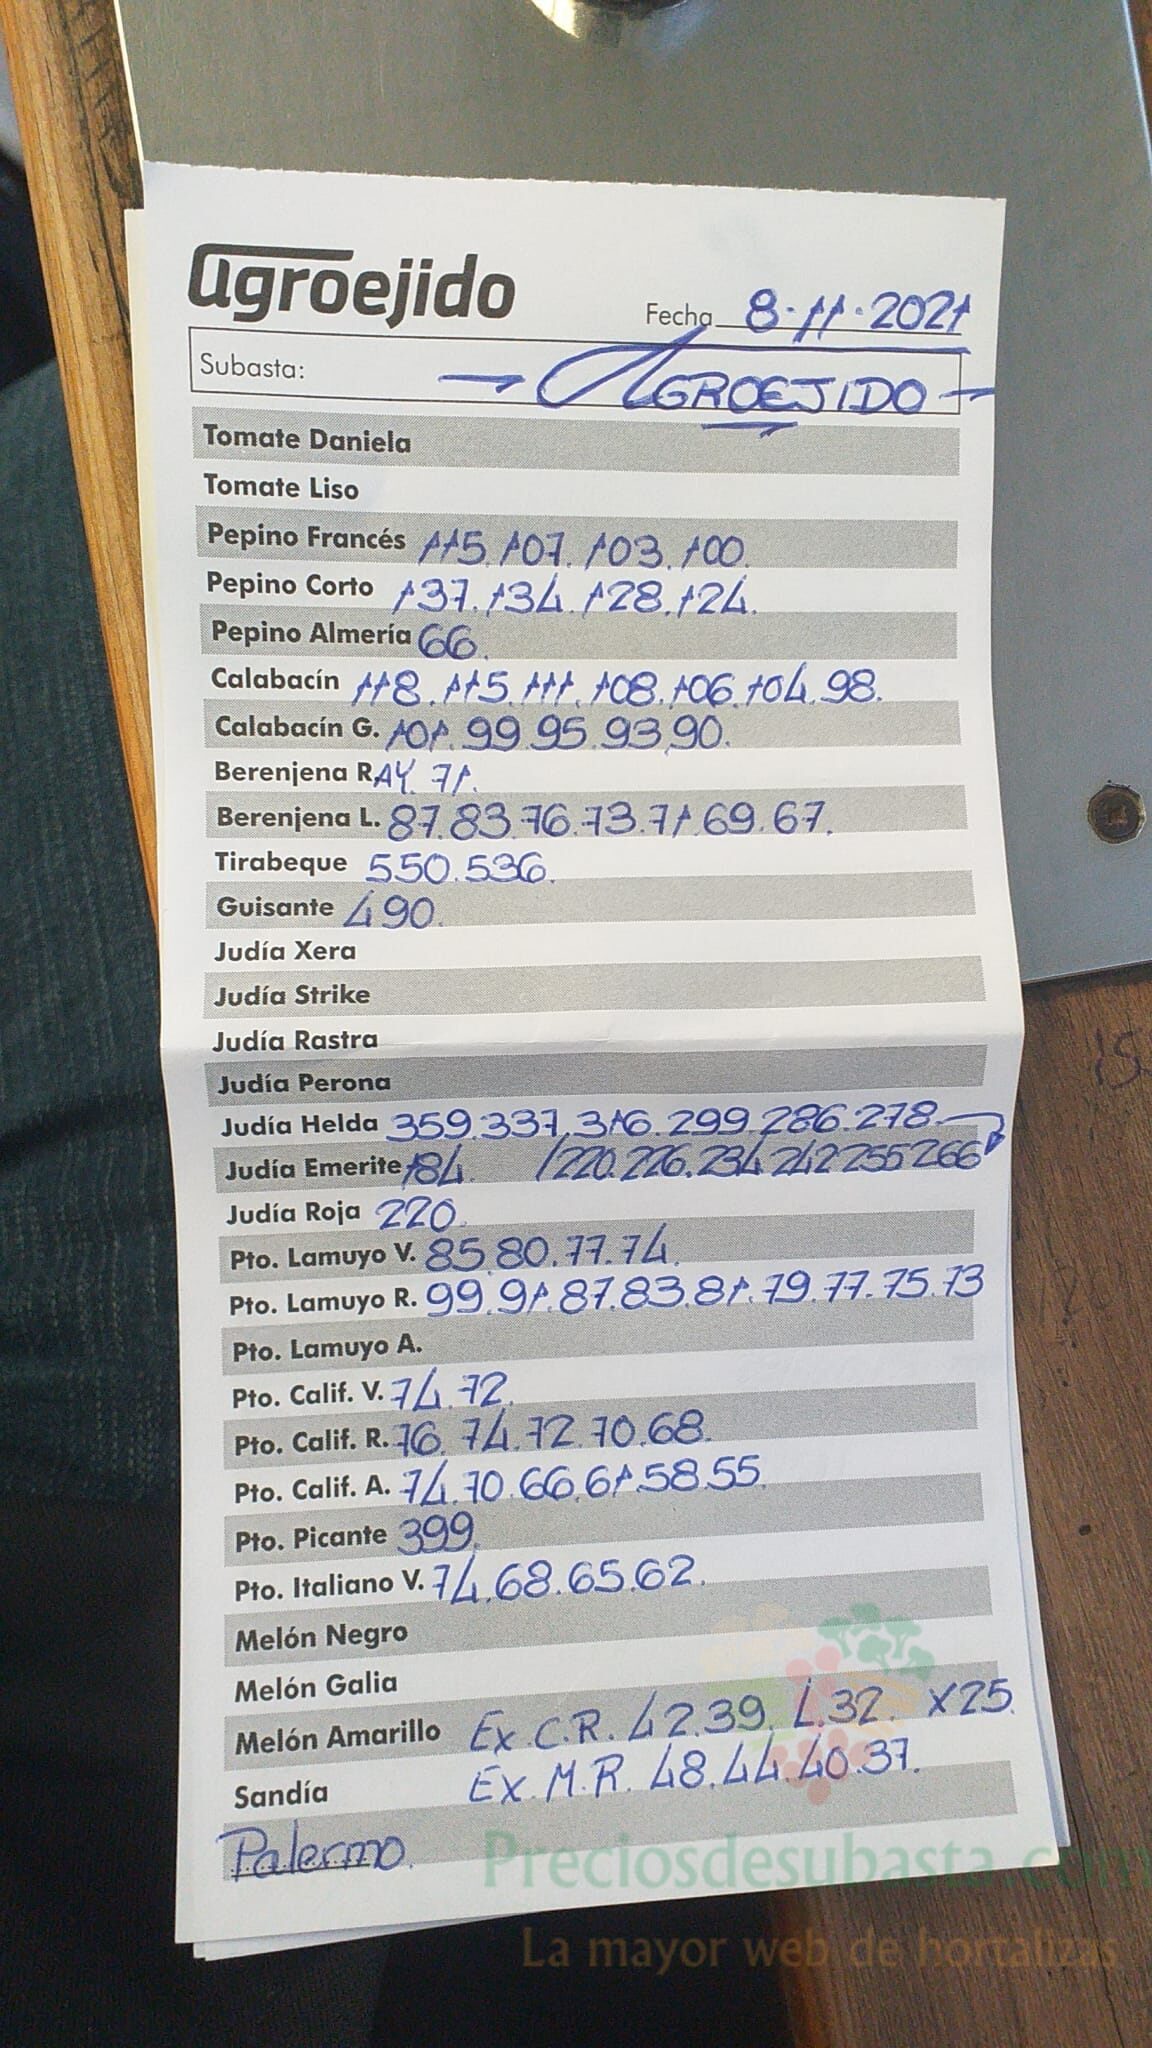 agroejido
Fecha 8-11-2021
Subasta: AGROEJIDO
Tomate Daniela
Tomate Liso
Pepino Francés 115. 107. 103. 100.
Pepino Corto 137. 134. 128. 124.
Pepino Almería 66.
Calabacín 118. 115. 111. 108. 106. 104. 98.
Calabacín G. 101. 99. 95. 93. 90.
Berenjena RAY. 71.
Berenjena L. 87. 83. 76. 73. 71. 69. 67.
Tirabeque 550. 536.
Guisante 490.
Judía Xera
Judía Strike
Judía Rastra
Judía Perona
Judía Helda 359. 337. 316. 299. 286. 278
Judía Emerite 184. /220. 226. 234 242 255 266
Judía Roja 220.
Pto. Lamuyo V. 85. 80. 77. 74.
Pto. Lamuyo R. 99. 91. 87. 83. 81. 79. 77. 75. 73
Pto. Lamuyo A.
Pto. Calif. V. 74. 72.
Pto. Calif. R. 76. 74. 72. 70. 68.
Pto. Calif. A. 74. 70. 66. 61. 58. 55.
Pto. Picante 399.
Pto. Italiano V. 74. 68. 65. 62.
Melón Negro
Melón Galia
Melón Amarillo Ex. C. R. 42. 39. L. 32. X 25.
Sandía Ex. M. R. 48. 44. 40. 37.
Palermo.
Preciosdesubasta.com
La mayor web de hortalizas